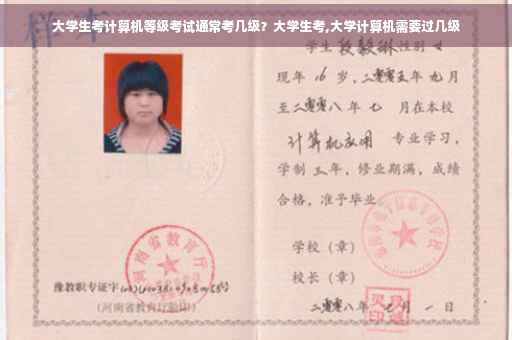 大学生考计算机等级考试通常考几级？大学生考,大学计算机需要过几级
样本
学生 段毅琳 性别 女
现年 16 岁，二零零五年 九月
至二零零八年 七 月在本校
计算机应用 专业学习，
学制 三 年，修业期满，成绩
合格，准予毕业。
学校（章）
校长（章）
河南省教育厅
豫教职专证字
（河南省教育厅验印）
二零零八年 七 月 一 日